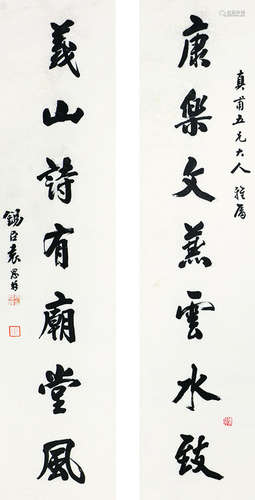 真甫五兄大人雅屬
康樂文兼雲水致
義山詩有廟堂風
錫臣袁思韠